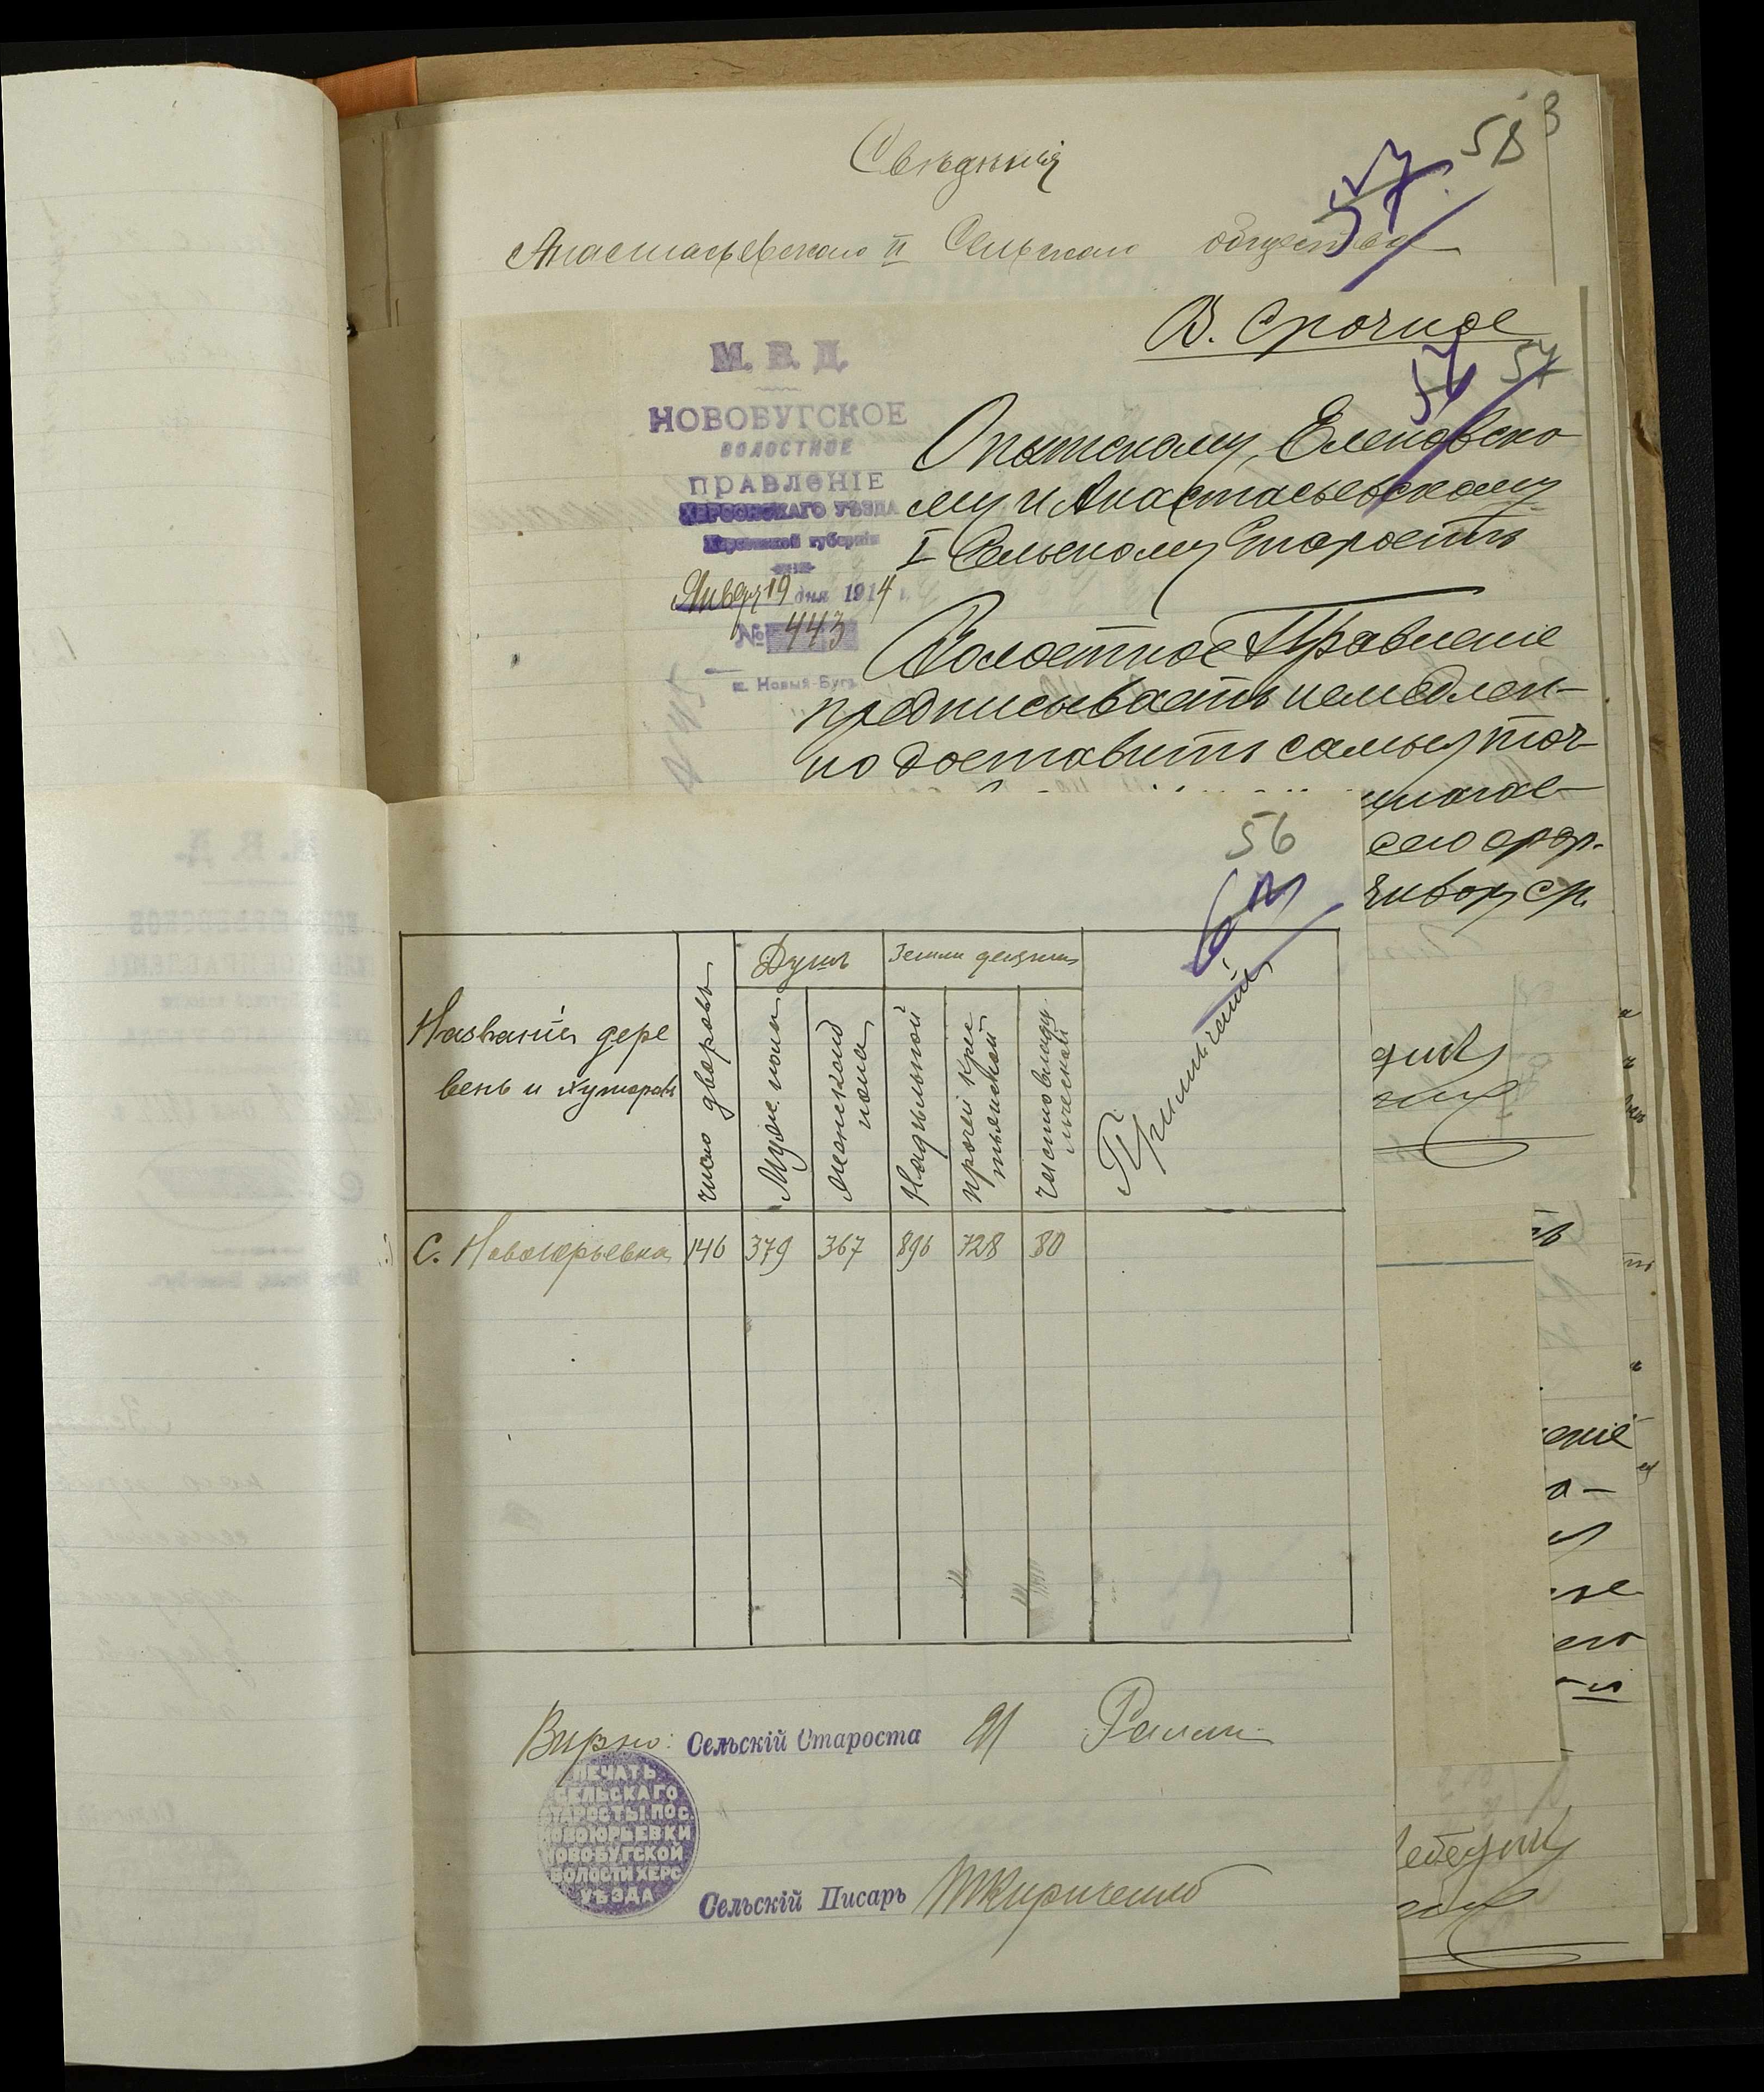 58
57
Свѣдѣнія
Анастасьевскаго II Сельскаго общества
В. Срочное
57
56
М. В. Д.
НОВОБУГСКОЕ
ВОЛОСТНОЕ
ПРАВЛЕНІЕ
ХЕРСОНСКАГО УѢЗДА
Херсонской губерніи
Января 19 дня 1914 г.
№ 443
м. Новый-Бугъ
Опытскому, Еленовско
му и Анастасьевскому
I Сельскому Старостѣ
Волостное Правленіе
предписываетъ немедлен-
но доставить самыя точ-
лагае-
сего фор.
56
Названія дере
вень и хуторовъ
число дворовъ
Душъ
Муж. пола
женскаго
пола
Земли десятинъ
Надѣльной
прочей кре
стьянской
частновладѣ
льческой
Примѣчаній
С. Новоюрьевка 146 379 367 896 728 80
Вѣрно: Сельскій Староста
ПЕЧАТЬ
СЕЛЬСКАГО
СТАРОСТЫ ПОС.
НОВОЮРЬЕВКИ
НОВОБУГСКОЙ
ВОЛОСТИ ХЕРС
УѢЗДА
Сельскій Писарь Кириченко